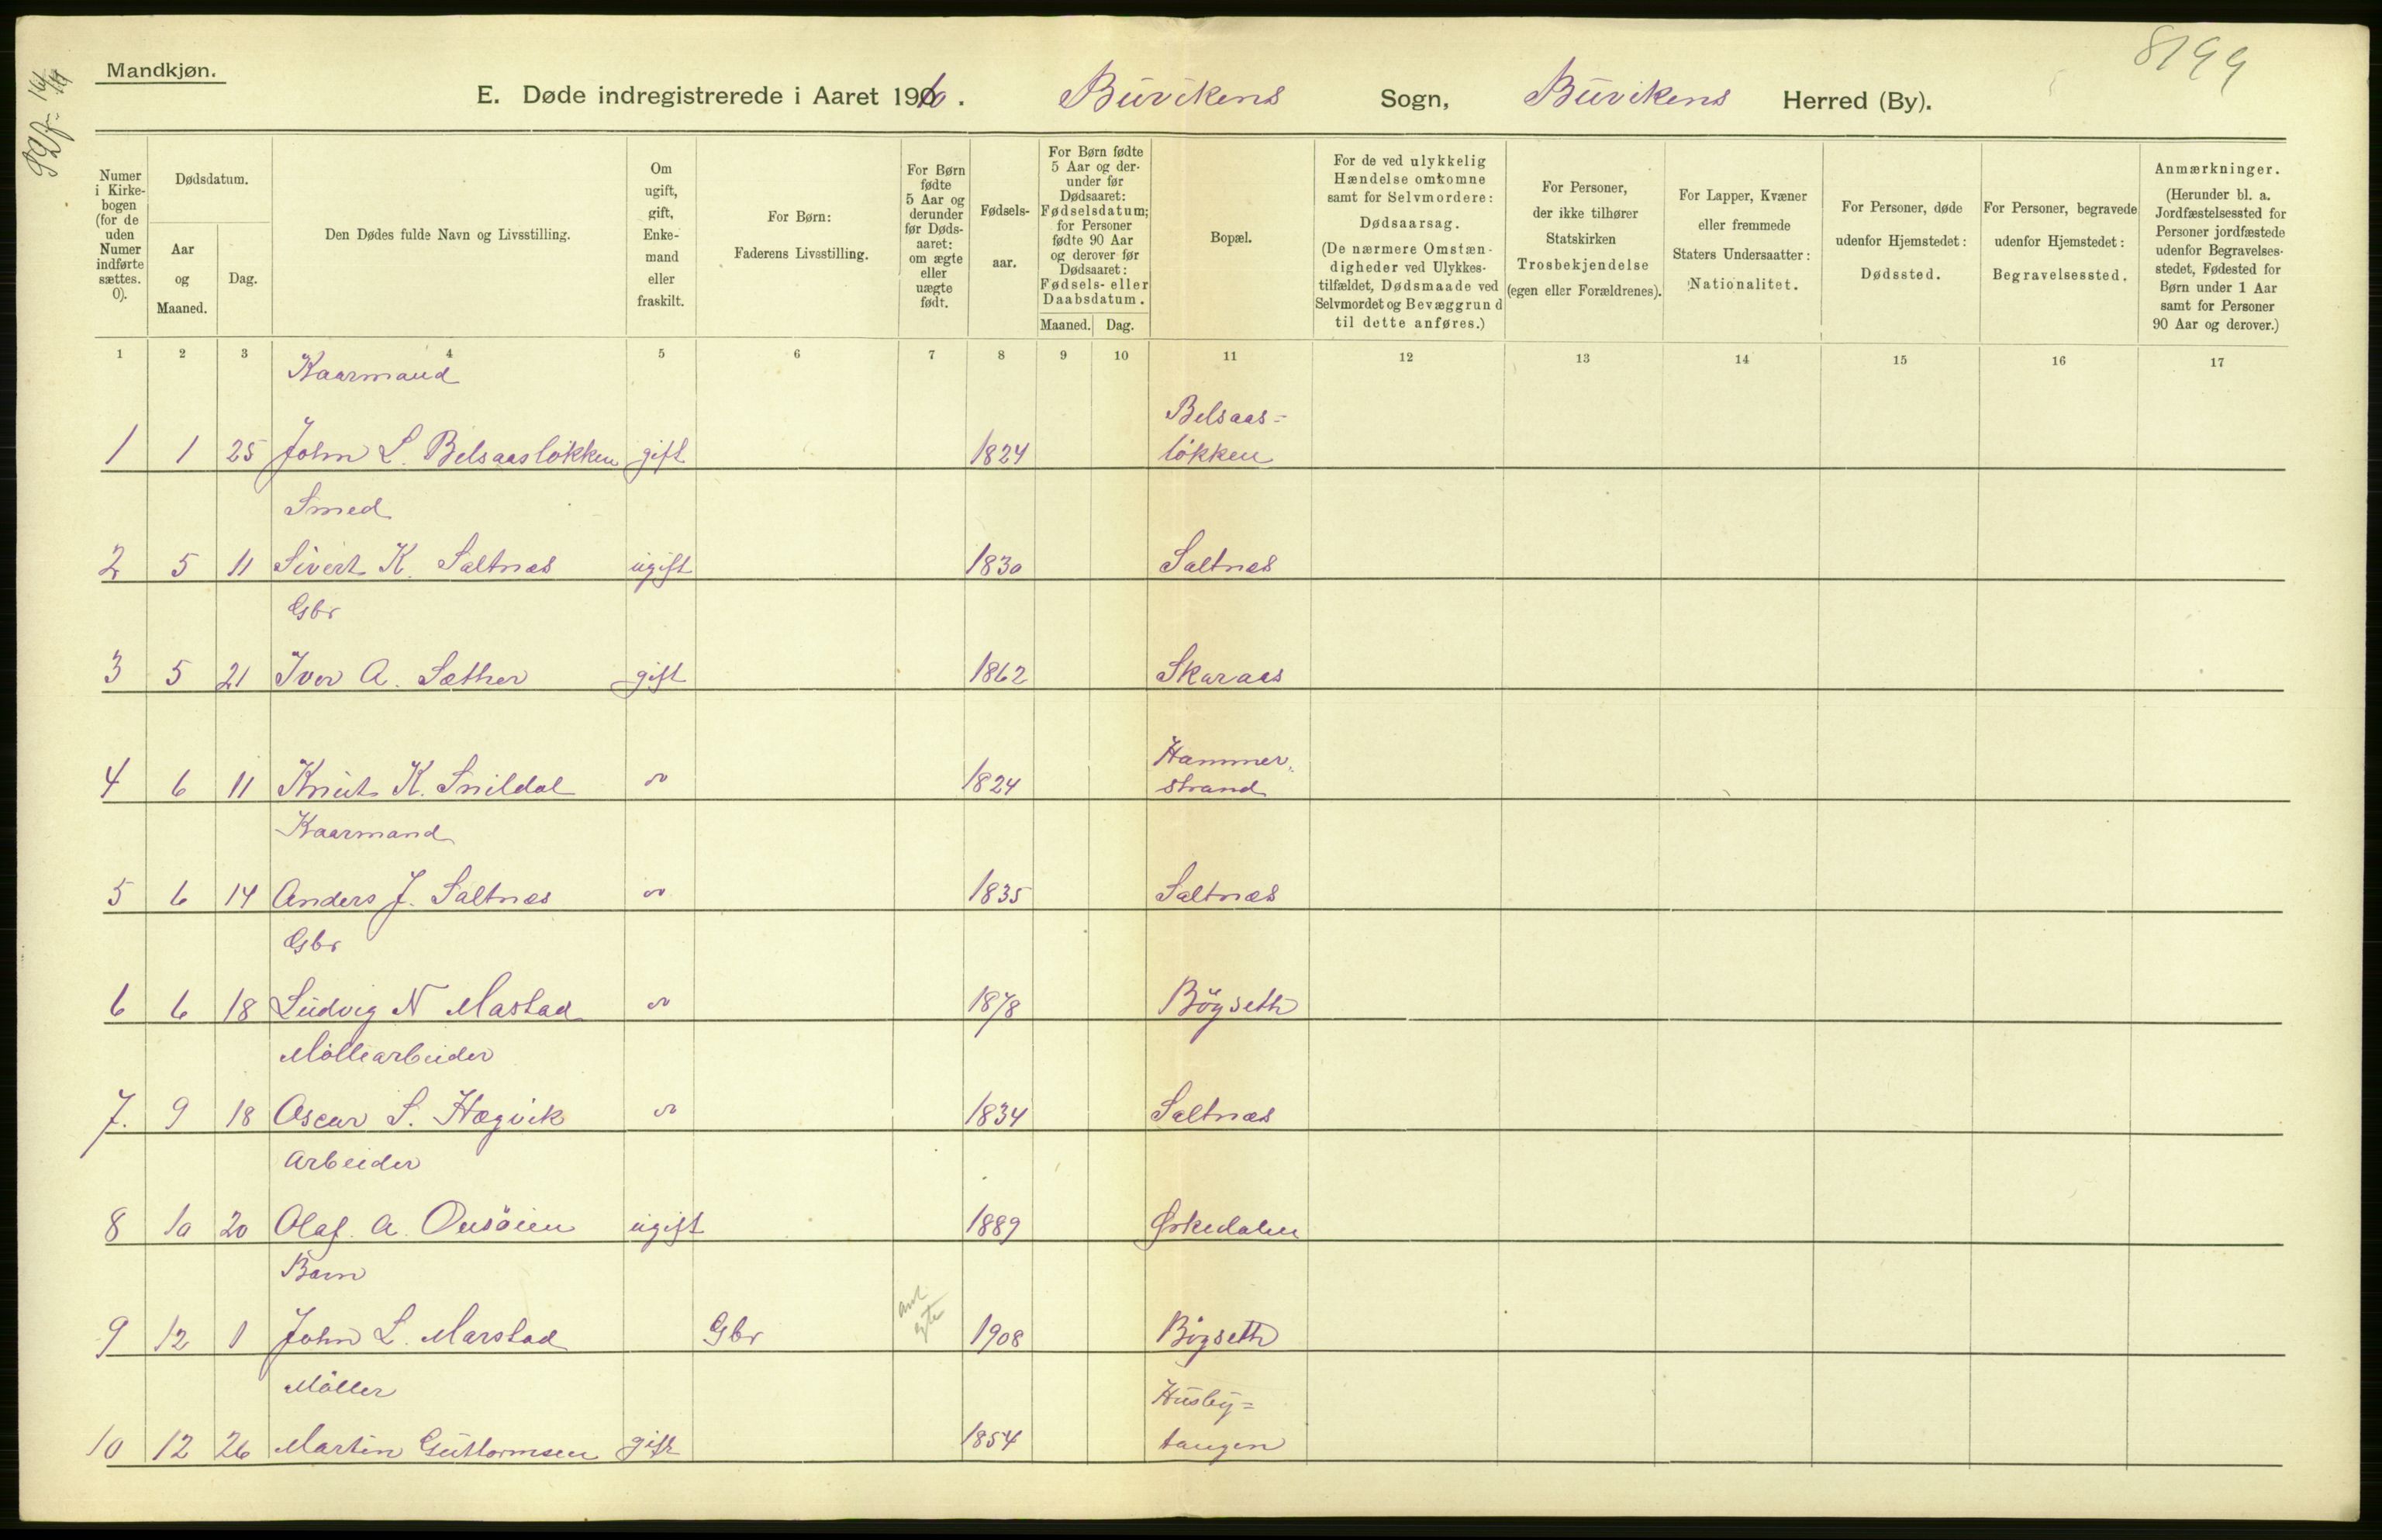 8199
Mandkjøn.
E. Døde indregistrerede i Aaret 1910. Buvikens Sogn, Buvikens Herred (By).
Numer i Kirke-bogen (for de uden Numer indførte sættes. 0).
Dødsdatum.
Aar og Maaned.
Dag.
Den Dødes fulde Navn og Livsstilling.
Om ugift, gift, Enke-mand eller fraskilt.
For Børn: Faderens Livsstilling.
For Børn fødte 5 Aar og derunder før Døds-aaret: om ægte eller uægte født.
Fødsels-aar.
For Børn fødte 5 Aar og der-under før Dødsaaret: Fødselsdatum; for Personer fødte 90 Aar og derover før Dødsaaret: Fødsels- eller Daabsdatum.
Maaned. Dag.
Bopæl.
For de ved ulykkelig Hændelse omkomne samt for Selvmordere: Dødsaarsag. (De nærmere Omstæn-digheder ved Ulykkes-tilfældet, Dødsmaade ved Selvmordet og Bevæggrund til dette anføres.)
For Personer, der ikke tilhører Statskirken Trosbekjendelse (egen eller Forældrenes).
For Lapper, Kvæner eller fremmede Staters Undersaatter: Nationalitet.
For Personer, døde udenfor Hjemstedet: Dødssted.
For Personer, begravede udenfor Hjemstedet: Begravelsessted.
Anmærkninger. (Herunder bl. a. Jordfæstelsessted for Personer jordfæstede udenfor Begravelses-stedet, Fødested for Børn under 1 Aar samt for Personer 90 Aar og derover.)
1 2 3 4 5 6 7 8 9 10 11 12 13 14 15 16 17
Kaarmand
Belsaas=
1 1 25 John L. Belsaasløkken gift 1824 løkken
Smed
2 5 11 Sivert K. Saltnæs ugift 1830 Saltnæs
Gbr
3 5 21 Iver A. Sæther gift 1862 Skaraas
Hammer-
4 6 11 Knut K. Snildal " 1824 strand
Kaarmand
5 6 14 Anders J. Saltnæs " 1835 Saltnæs
Gbr
6 6 18 Ludvig N Mastad " 1878 Bögseth
Möllearbeider
7. 9 18 Oscar S. Hægvik " 1834 Saltnæs
Arbeider
8 10 20 Olaf. A. Ousöien ugift 1889 Orkedalen
Barn
9 12 1 John L. Marstad Gbr 1908 Bögseth
Möller
Husby=
10 12 26 Martin Guttormsen gift 1854 tangen